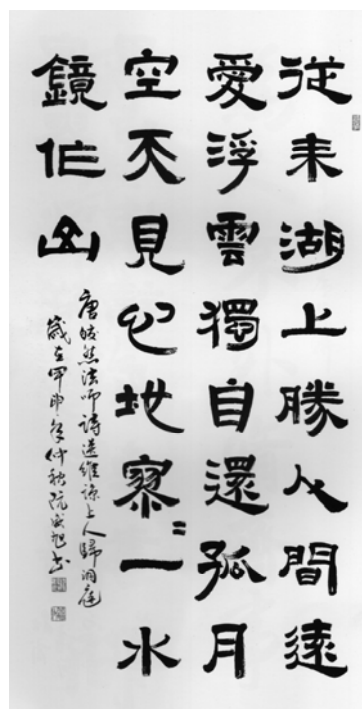 從来湖上勝人間遠
愛浮雲獨自還孤月
空天見心地寥〻一水
鏡作山
唐皎然法師詩送維諒上人歸洞庭
歲在甲申年仲秋阮旭书